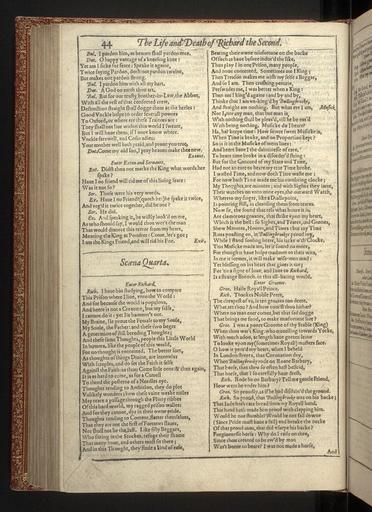 44 The Life and Death of Richard the Second.
Bul. I pardon him, as heaven shall pardon mee.
Dut. O happy vantage of a kneeling knee:
Yet am I sicke for feare: Speake it againe,
Twice saying Pardon, doth not pardon twaine,
But makes one pardon strong.
Bul. I pardon him with all my hart.
Dut. A God on earth thou art.
With all the rest of that consorted crew,
Destruction straight shall dogge them at the heeles:
Good Vnckle helpe to order severall powres
To Oxford, or where ere these Traitors are:
They shall not live within this world I sweare,
But I will have them, if I once know where.
Vnckle farewell, and Cosin adieu:
Your mother well hath praid, and prove you true.
Dut. Come my old son, I pray heaven make thee new.
Exeunt.
Enter Exton and Servants.
Ext. Didst thou not marke the King what words hee
spake?
Have I no friend will rid me of this living feare:
Was it not so?
Ser. Those were his very words.
Ex. Have I no Friend? (quoth he:) he spake it twice,
And urg'd it twice together, did he not?
Ser. He did.
Ex. And speaking it, he wistly look'd on me,
As who should say, I would thou wer't the man
That would divorce this terror from my heart,
Meaning the King at Pomfret: Come, let's goe;
I am the Kings Friend, and will rid his Foe. Exit.
Scæna Quarta.
Enter Richard.
Rich. I have bin studying, how to compare
This Prison where I live, unto the World:
And for because the world is populous,
And heere is not a Creature, but my selfe,
I cannot do it: yet Ile hammer't out.
My Braine, Ile prove the Female to my Soule,
My Soule, the Father: and these two beget
A generation of still breeding Thoughts;
And these same Thoughts, people this Little World
In humors, like the people of this world,
For no thought is contented. The better sort,
As thoughts of things Divine, are intermixt
With scruples, and do set the Faith it selfe
Against the Faith: as thus: Come litle ones: & then again,
It is as hard to come, as for a Camell
To thred the posterne of a Needles eye.
Thoughts tending to Ambition, they do plot
Unlikely wonders; how these vaine weake nailes
May teare a passage through the Flinty ribbes
Of this hard world, my ragged prison walles:
And for they cannot, dye in their owne pride.
Thoughts tending to Content, flatter themselves,
That they are not the first of Fortunes slaves,
Nor shall not be the last. Like silly Beggars,
Who sitting in the Stockes, refuge their shame
That many have, and others must sit there;
And in this Thought, they finde a kind of ease,
Bearing their owne misfortune on the backe
Of such as have before indur'd the like.
Thus play I in one Prison, many people,
And none contented. Sometimes am I King;
Then Treason makes me wish my selfe a Beggar,
And so I am. Then crushing penurie,
Perswades me, I was better when a King:
Then am I king'd againe: and by and by,
Thinke that I am un-king'd by Bullingbrooke,
And straight am nothing. But what ere I am, Musick
Nor I, nor any man, that but man is,
With nothing shall be pleas'd, till he be eas'd
With being nothing. Musicke do I heare?
Ha, ha? keepe time: How sowre sweet Musicke is,
When Time is broke, and no Proportion kept?
So is it in the Musicke of mens lives:
And heere have I the daintinesse of eare,
To heare time broke in a disorder'd string:
But for the Concord of my State and Time,
Had not an eare to heare my true Time broke.
I wasted Time, and now doth Time waste me:
For now hath Time made me his numbring clocke;
My Thoughts, are minutes; and with Sighes they jarre,
Their watches on unto mine eyes, the outward Watch,
Whereto my finger, like a Dialls point,
Is pointing still, in cleansing them from teares.
Now sir, the sound that tels what houre it is,
Are clamorous groanes, that strike upon my heart,
Which is the bell: so Sighes, and Teares, and Grones,
Shew Minutes, Houres, and Times: but my Time
Runs poasting on, in Bullingbrookes proud joy,
While I stand fooling heere, his Iacke o'th'Clocke.
This Musicke mads me, let it sound no more,
For though it have holpe madmen to their wits,
In me it seemes, it will make wise-men mad:
Yet blessing on his heart that gives it me;
For 'tis a signe of love, and love to Richard,
Is a strange Brooch, in this all-hating world.
Enter Groome.
Groo. Haile Royall Prince.
Rich. Thankes Noble Peere,
The cheapest of us, is ten groates too deere.
What art thou? And how com'st thou hither?
Where no man ever comes, but that sad dogge
That brings me food, to make misfortune live?
Groo. I was a poore Groome of thy Stable (King)
When thou wer't King: who travelling towards Yorke,
With much adoo, at length have gotten leave
To looke upon my (sometimes Royall) masters face.
O how it yern'd my heart, when I beheld
In London streets, that Coronation day,
When Bullingbrooke rode on Roane Barbary,
That horse, that thou so often hast bestrid,
That horse, that I so carefully have drest.
Rich. Rode he on Barbary? Tell me gentle Friend,
How went he under him?
Groo. So proudly, as if he had disdain'd the ground.
Rich. So proud, that Bullingbrooke was on his backe;
That Iade hath eate bread from my Royall hand.
This hand hath made him proud with clapping him.
Would he not stumble? Would he not fall downe
(Since Pride must have a fall) and breake the necke
Of that proud man, that did usurpe his backe?
Forgivenesse horse: Why do I raile on thee,
Since thou created to be aw'd by man
Was't borne to beare? I was not made a horse,
And